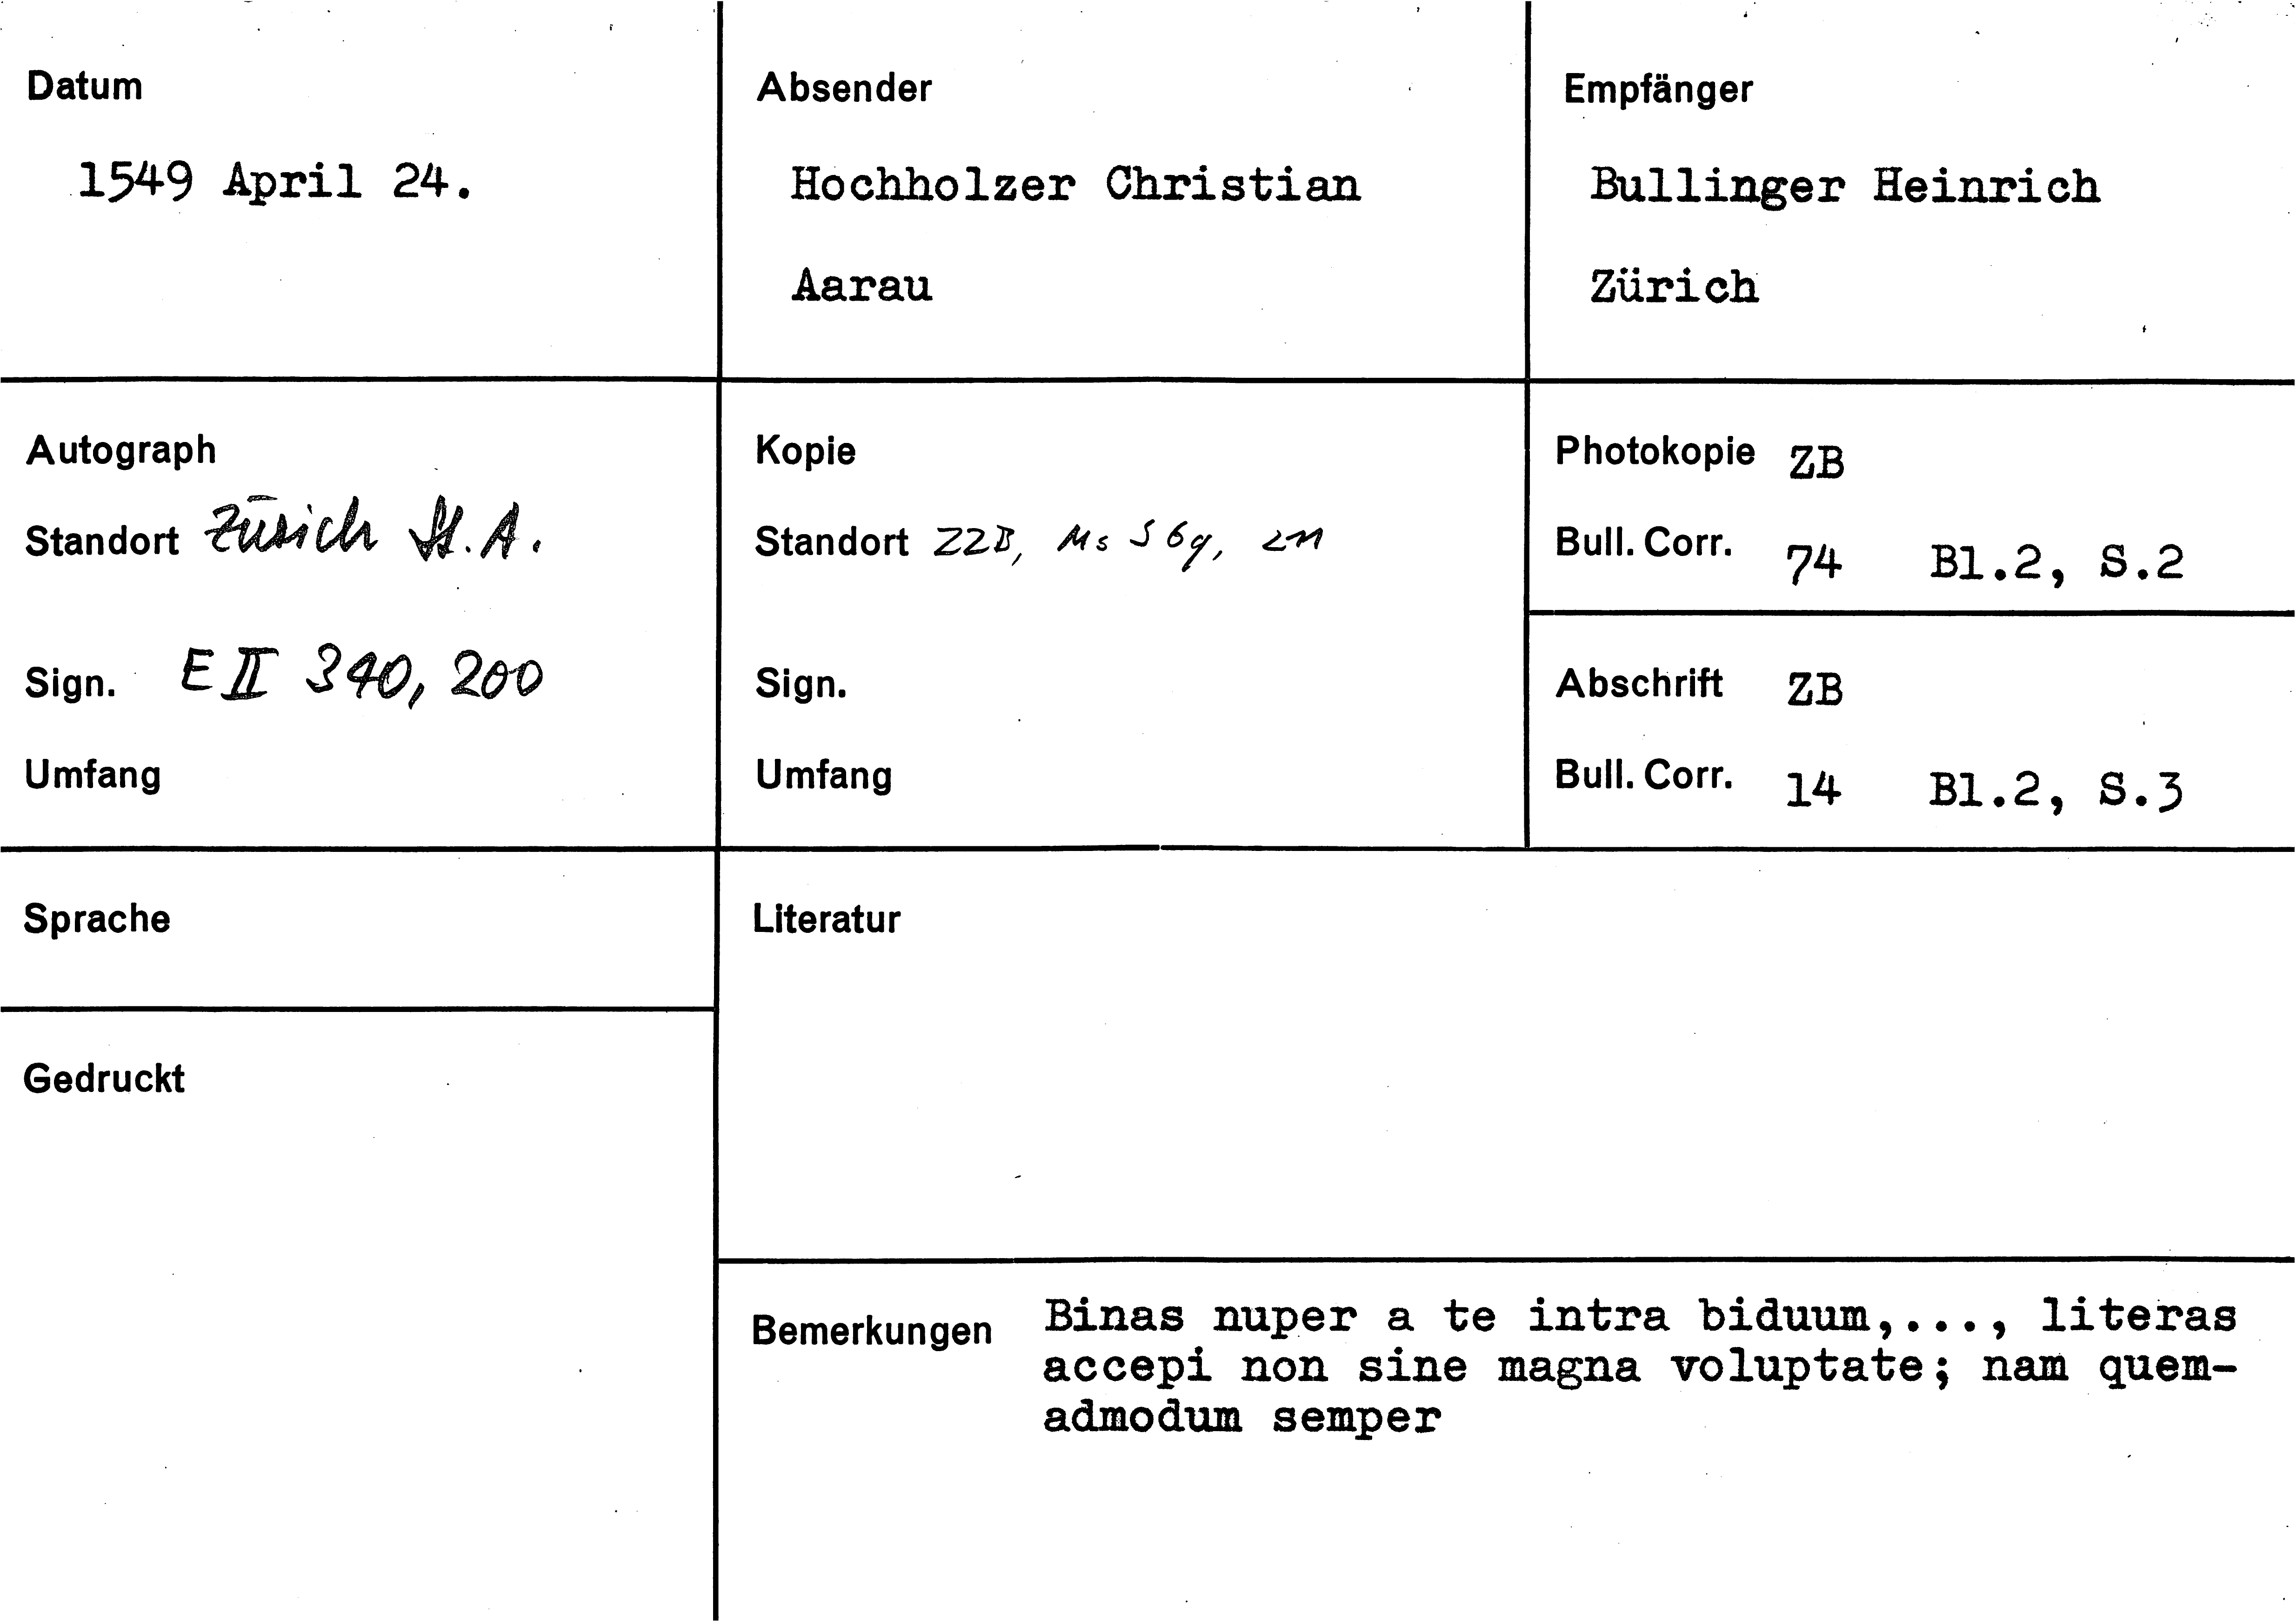 Datum
1549 April 24.
Absender
Hochholzer Christian
Aarau
Empfänger
Bullinger Heinrich
Zürich
Autograph
Standort Zürich St. A.
Sign. E II 340, 200
Umfang
Kopie
Standort ZZB, Ms S 69, 211
Sign.
Umfang
Photokopie ZB
Bull. Corr. 74 Bl.2, S.2
Abschrift ZB
Bull. Corr. 14 Bl.2, S.3
Sprache
Gedruckt
Literatur
Bemerkungen Binas nuper a te intra biduum,..., literas
accepi non sine magna voluptate; nam quem-
admodum semper